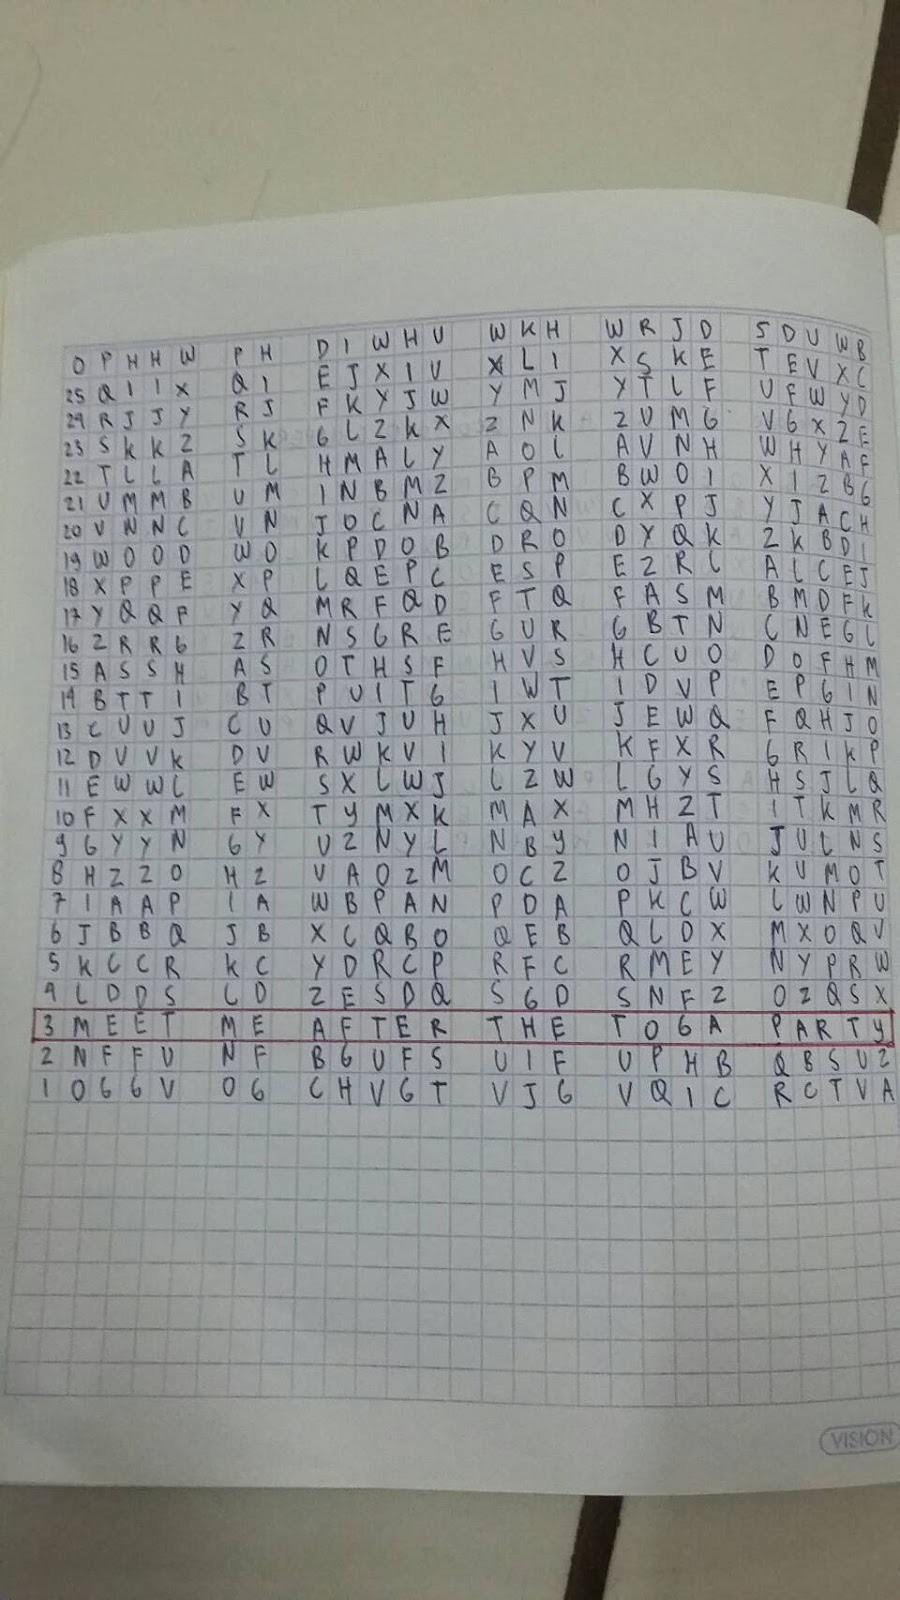 0 P H H W P H D I W H U W K H W R J D S D U W B
25 Q I I X Q I E J X I V X L I X S K E T E V X C
24 R J J Y R J F K Y J W Y M J Y T L F U F W Y D
23 S K K Z S K G L Z K X Z N K Z U M G V G X Z E
22 T L L A T L H M A L Y A O L A V N H W H Y A F
21 U M M B U M I N B M Z B P M B W O I X I Z B G
20 V N N C V N J O C N A C Q N C X P J Y J A C H
19 W O O D W O K P D O B D R O D Y Q K Z K B D I
18 X P P E X P L Q E P C E S P E Z R L A L C E J
17 Y Q Q F Y Q M R F Q D F T Q F A S M B M D F K
16 Z R R G Z R N S G R E G U R G B T N C N E G L
15 A S S H A S O T H S F H V S H C U O D O F H M
14 B T T I B T P U I T G I W T I D V P E P G I N
13 C U U J C U Q V J U H J X U J E W Q F Q H J O
12 D V V K D V R W K V I K Y V K F X R G R I K P
11 E W W L E W S X L W J L Z W L G Y S H S J L Q
10 F X X M F X T Y M X K M A X M H Z T I T K M R
9 G Y Y N G Y U Z N Y L N B Y N I A U J U L N S
8 H Z Z O H Z V A O Z M O C Z O J B V K V M O T
7 I A A P I A W B P A N P D A P K C W L W N P U
6 J B B Q J B X C Q B O Q E B Q L D X M X O Q V
5 K C C R K C Y D R C P R F C R M E Y N Y P R W
4 L D D S L D Z E S D Q S G D S N F Z O Z Q S X
3 M E E T M E A F T E R T H E T O G A P A R T Y
2 N F F U N F B G U F S U I F U P H B Q B S U Z
1 O G G V O G C H V G T V J G V Q I C R C T V A
VISION